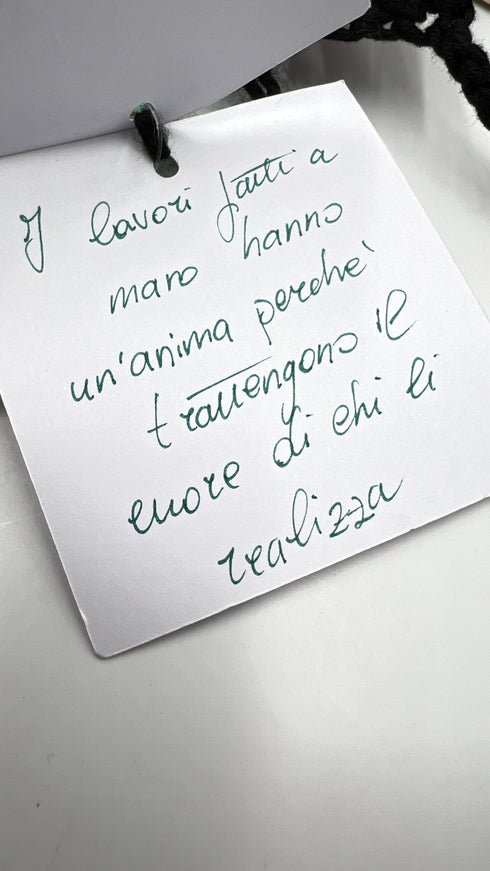 I lavori fatti a
mano hanno
un'anima perchè
trattengono il
cuore di chi li
realizza